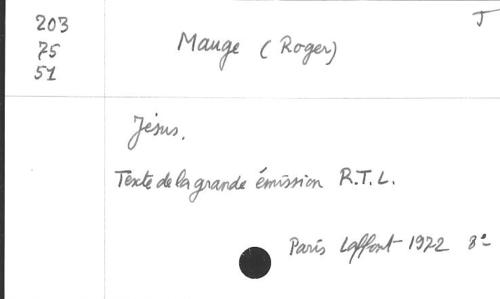 J
203
75
51
Mauge (Roger)
Jésus.
Texte de la grande émission R.T.L.
Paris Laffont 1972 8°